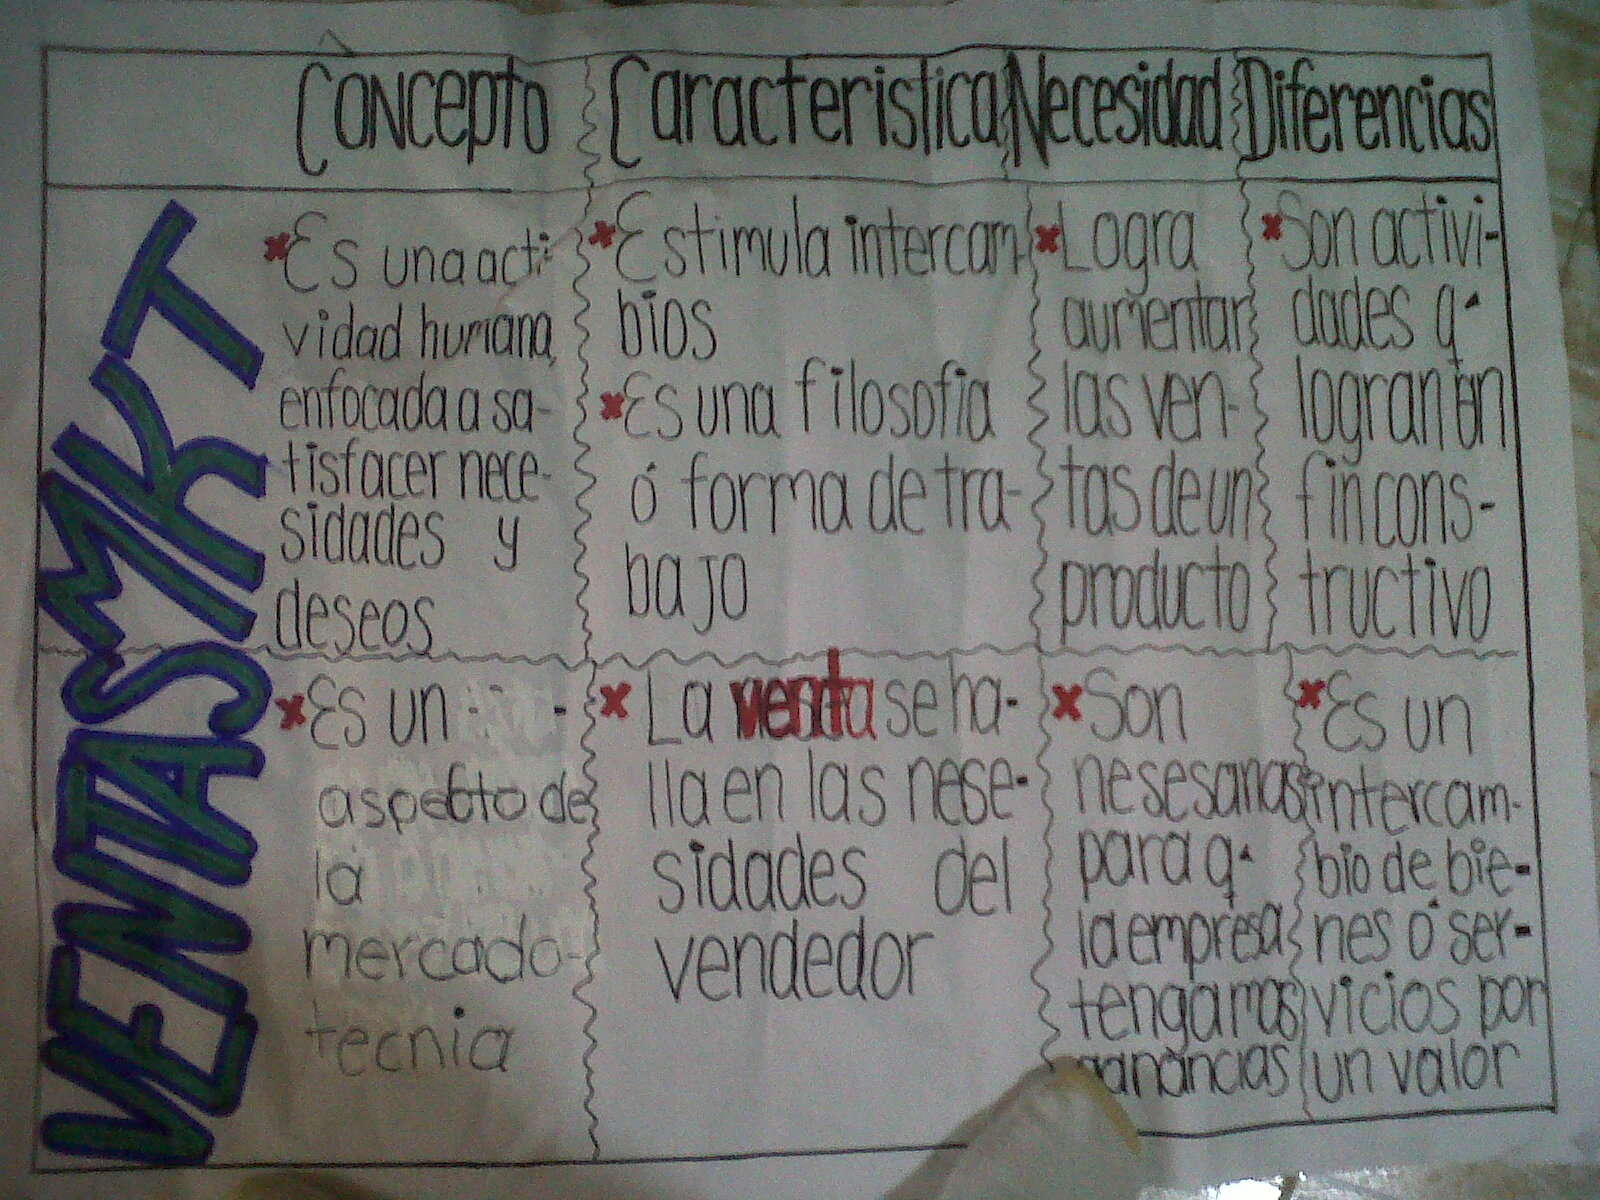 Concepto Caracteristica Necesidad Diferencias
MKT
Es una acti-
vidad humana,
enfocada a sa-
tisfacer nece-
sidades y
deseos
Estimula intercam-
bios
Es una filosofia
ó forma de tra-
bajo
Logra
aumentar
las ven-
tas de un
producto
Son activi-
dades q'
logran un
fin cons-
tructivo
VENTAS
Es un
aspecto de
la
mercado-
tecnia
La venta se ha-
lla en las nese-
sidades del
vendedor
Son
nesesarias
para q'
la empresa
tenga mas
ganancias
Es un
intercam-
bio de bie-
nes ó ser-
vicios por
un valor